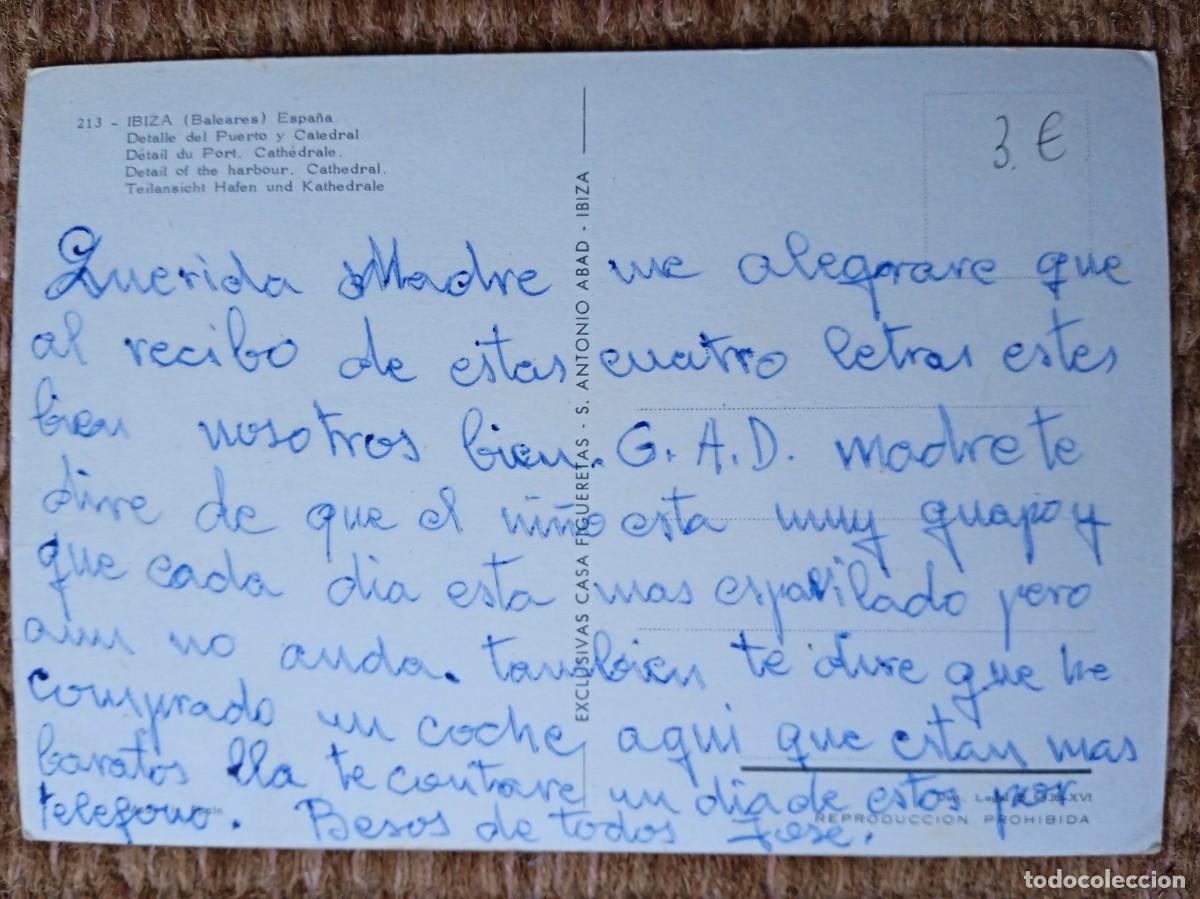 213 - IBIZA (Baleares) España
Detalle del Puerto y Catedral.
Détail du Port. Cathédrale.
Detail of the harbour. Cathedral.
Teilansicht Hafen und Kathedrale
3. €
Querida Madre me alegrare que
al recibo de estas cuatro letras estes
bien nosotros bien. G. A. D. madre te
dire de que el niño esta muy guapo y
que cada dia esta mas espavilado pero
aun no anda. tambien te dire que he
comprado un coche aqui que estan mas
baratos lla te contare un dia de estos por
telefono. Besos de todos Jose.
EXCLUSIVAS CASA FIGUERETAS - S. ANTONIO ABAD - IBIZA
XVI
REPRODUCCION PROHIBIDA
todocoleccion